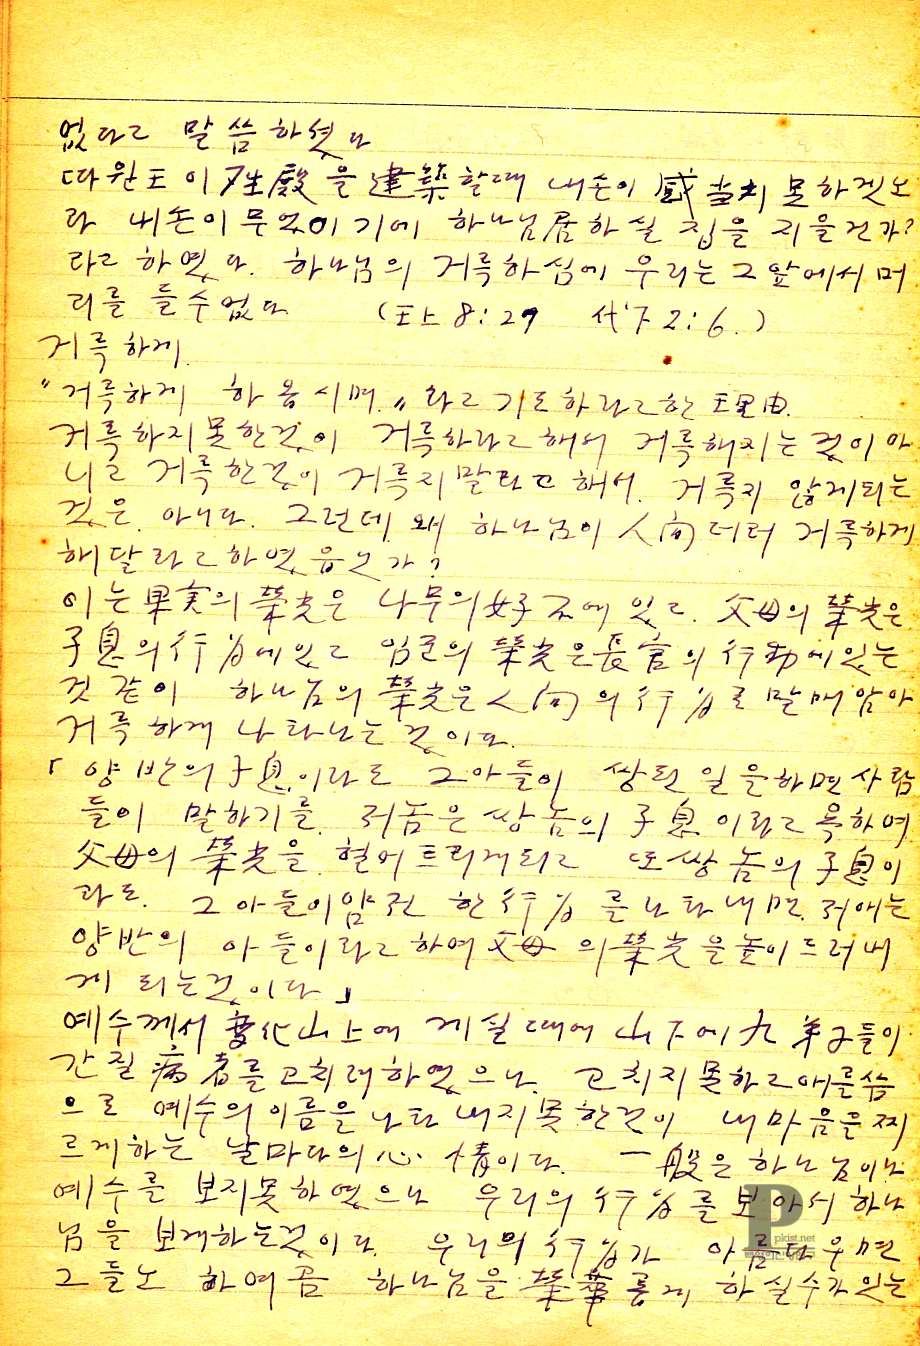 없다고 말씀하셨다
따윋王이 聖殿을 建築할때 내손이 感当치 못하겟노
라 내손이 무엇이기에 하나님居하실 집을 지을건가?
라고 하였다. 하나님의 거륵하심에 우리는 그앞에서 머
리를 들수없다 (王上 8:29 代下 2:6.)
거륵하게.
"거륵하게 하옵시며." 라고 기도하라고한 理由.
거륵하지못한것이 거륵하라고해서 거륵해지는것이아
니고 거륵한것이 거륵지말라고해서. 거륵지 않게되는
것은. 아니다. 그런데 왜 하나님이 人间더러 거륵하게
해달라고하였을가?
이는 果実의 榮光은 나무의 好不에 있고. 父母의 榮光은
子息의 行为에있고 임군의 榮光은 長官의 行動에있는
것같이 하나님의 榮光은 人间의 行为로 말매암아
거륵하게 나타나는것이다.
「양반의 子息이라도 그아들이 쌍된일을하면 사람
들이 말하기를. 저놈은 쌍놈의 子息이라고 욕하여
父母의 榮光을 헐어트리게되고 또 쌍놈의 子息이
라도. 그아들이얌전한 行为를 나타내면. 저애는
양반의 아들이라고하여 父母의 榮光을 높이드러내
게 되는것이다」
예수께서 変化山上에 계실때에 山下에 九 弟子들이
간질病者를 고치려하였으나. 고치지못하고애를씀
으로 예수의이름을 나타내지못한것이 내마음을찌
르게하는 날마다의 心情이다. 一般은 하나님이나
예수를 보지못하였으나 우리의 行为를 보아서 하나
님을 보게하는것이다. 우리의 行为가 아름다우면
그들노 하여곰 하나님을 榮華롭게 하실수가있는
P
pkist.net